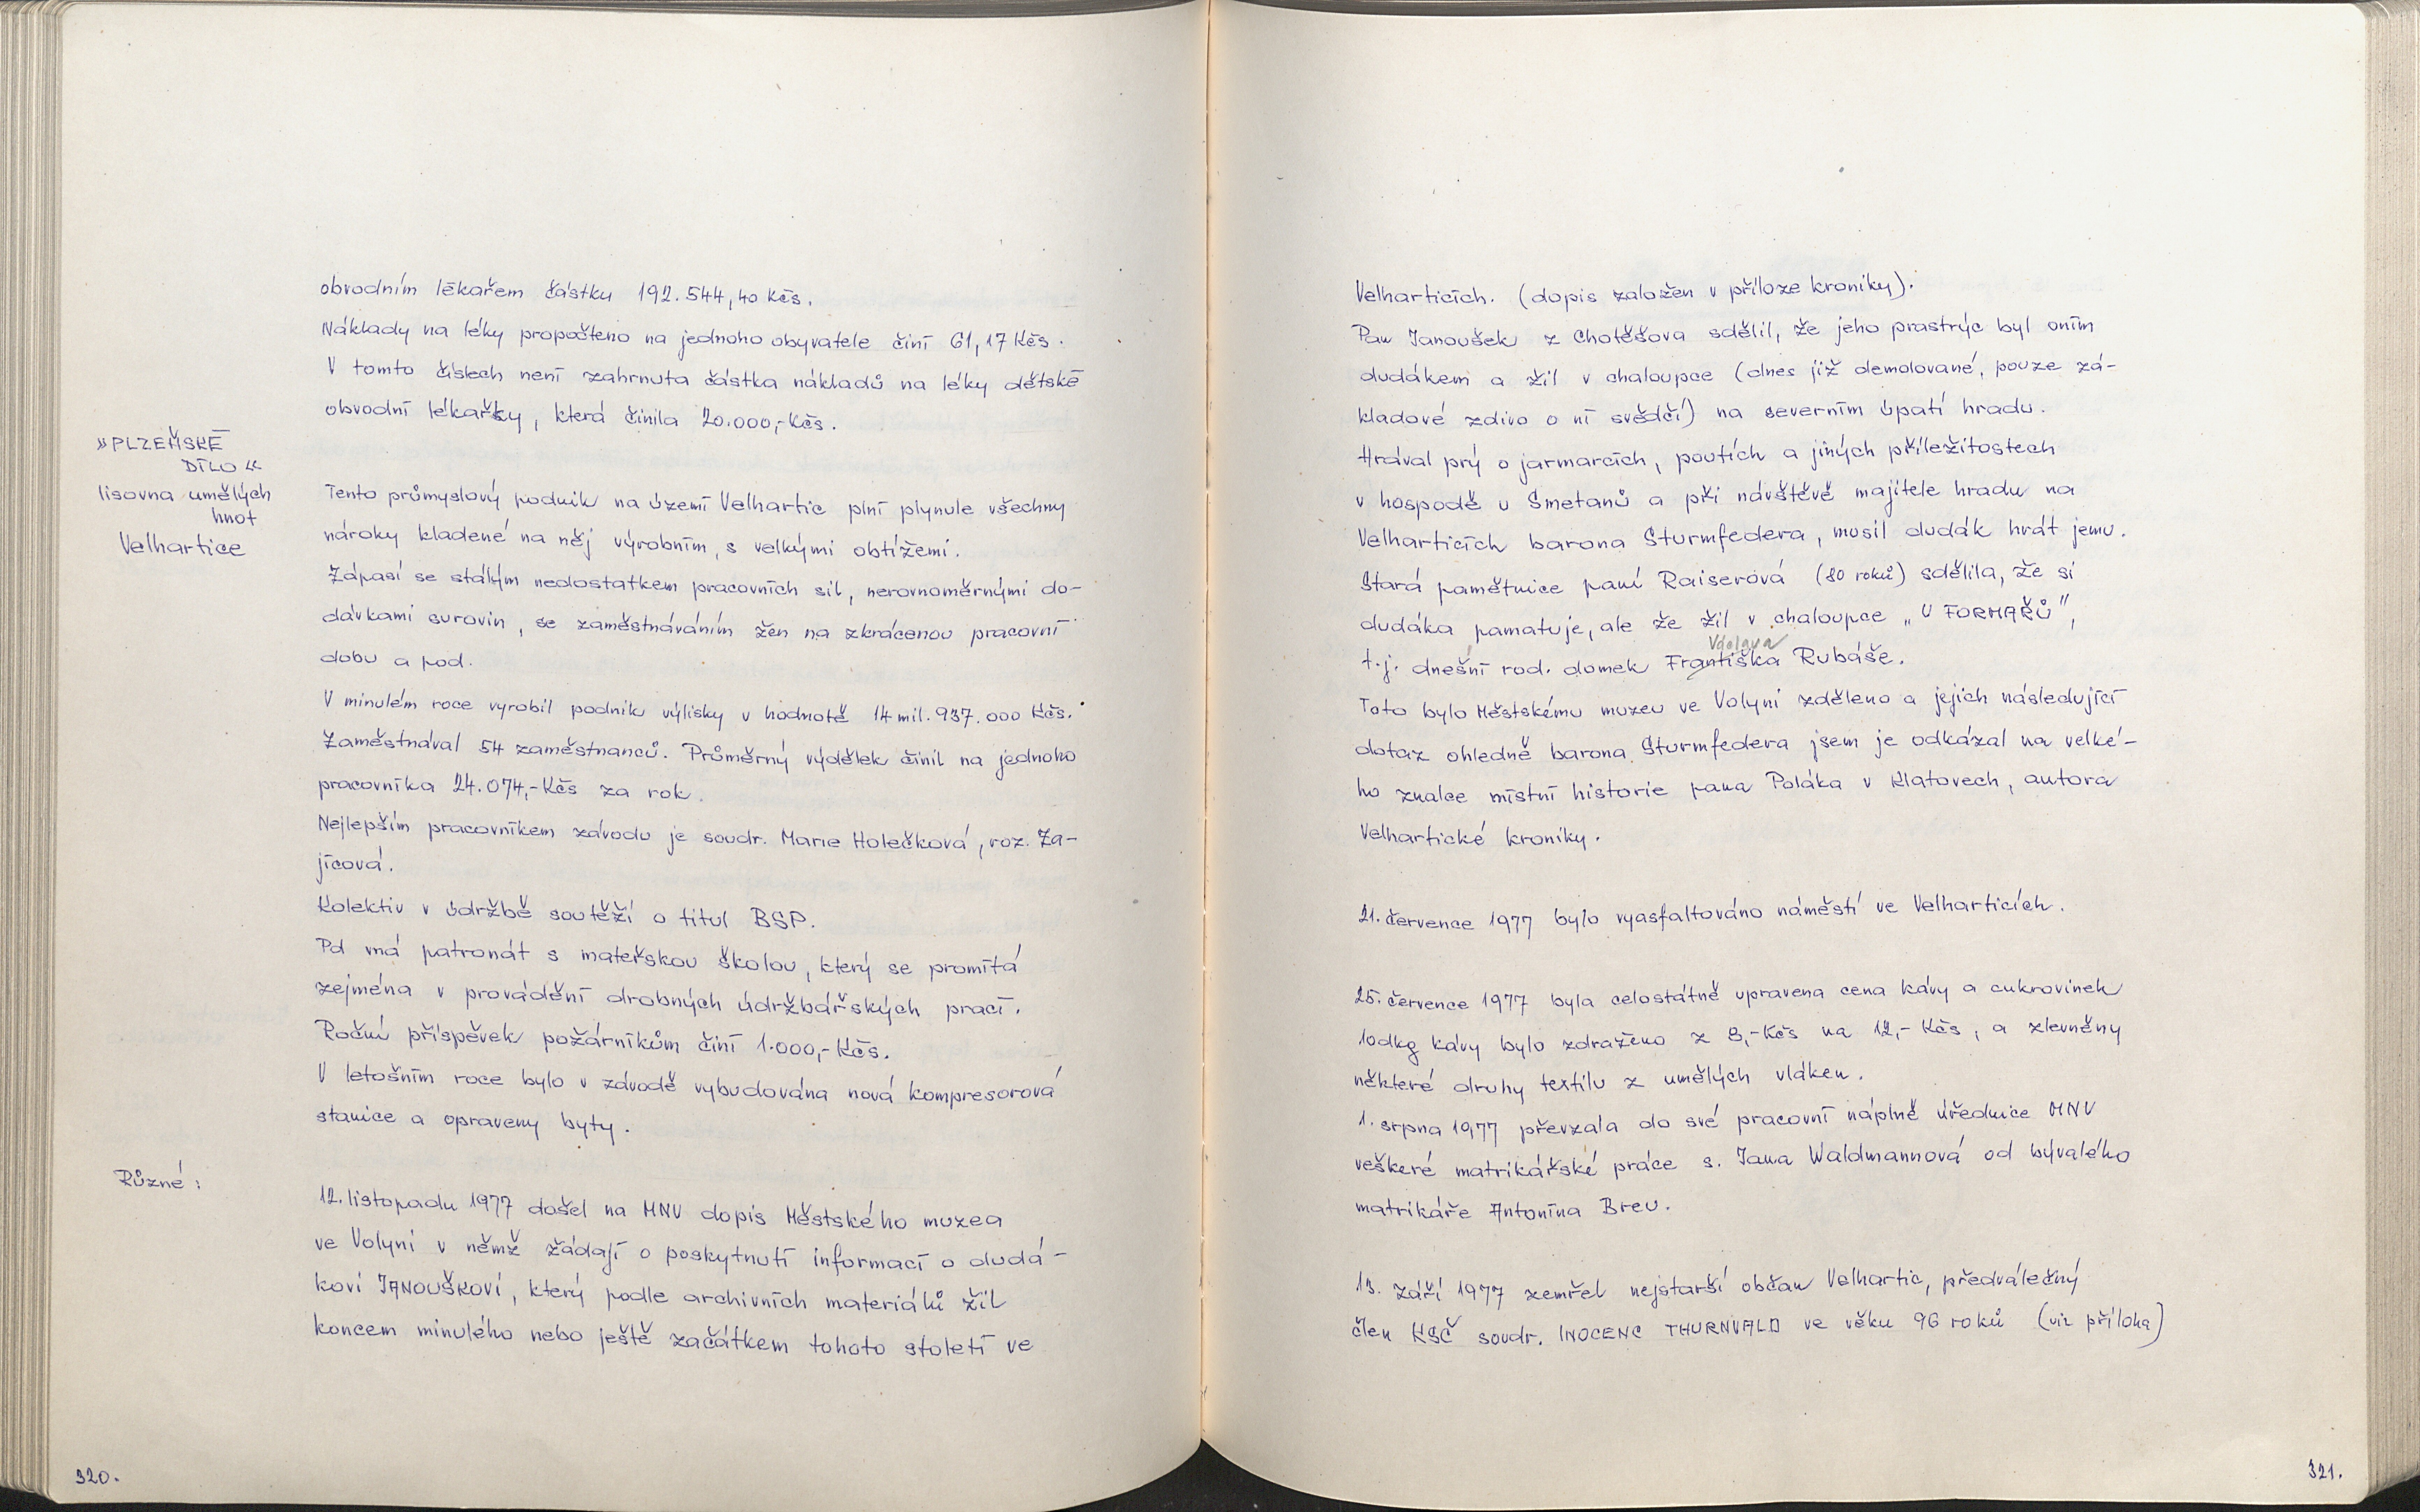 obvodním lékařem částku 192.544,40 Kčs.
Náklady na léky propočteno na jednoho obyvatele činí 61,17 Kčs.
V tomto číslech není zahrnuta částka nákladů na léky dětské
obvodní lékařky, která činila 20.000,- Kčs.
»PLZEŇSKÉ
DÍLO«
lisovna umělých
hmot
Velhartice
Tento průmyslový podnik na území Velhartic plní plynule všechny
nároky kladené na něj výrobním, s velkými obtížemi.
Zápasí se stálým nedostatkem pracovních sil, nerovnoměrnými do-
dávkami surovin, se zaměstnáváním žen na zkrácenou pracovní
dobu a pod.
V minulém roce vyrobil podnik výlisky v hodnotě 14 mil. 937.000 Kčs.
Zaměstnával 54 zaměstnanců. Průměrný výdělek činil na jednoho
pracovníka 24.074,- Kčs za rok.
Nejlepším pracovníkem závodu je soudr. Marie Holečková, roz. Za-
jícová.
Kolektiv v údržbě soutěží o titul BSP.
Pd má patronát s mateřskou školou, který se promítá
zejména v provádění drobných údržbářských prací.
Roční příspěvek požárníkům činí 1.000,- Kčs.
V letošním roce bylo v závodě vybudována nová kompresorová
stanice a opraveny byty.
Různé:
12. listopadu 1977 došel na MNV dopis Městského muzea
ve Volyni v němž žádají o poskytnutí informací o dudá-
kovi JANOUŠKOVI, který podle archivních materiálů žil
koncem minulého nebo ještě začátkem tohoto století ve
320.
Velharticích. (dopis založen v příloze kroniky).
Pan Janoušek z Chotěšova sdělil, že jeho prastrýc byl oním
dudákem a žil v chaloupce (dnes již demolované, pouze zá-
kladové zdivo o ní svědčí) na severním úpatí hradu.
Hrával prý o jarmarcích, poutích a jiných příležitostech
v hospodě u Smetanů a při návštěvě majitele hradu na
Velharticích barona Sturmfedera, musil dudák hrát jemu.
Stará pamětnice paní Raiserová (80 roků) sdělila, že si
dudáka pamatuje, ale že žil v chaloupce „U FORMAŘŮ",
Václava
t.j. dnešní rod. domek Františka Rubáše.
Toto bylo Městskému muzeu ve Volyni zděleno a jejich následující
dotaz ohledně barona Sturmfedera jsem je odkázal na velké-
ho znalce místní historie pana Poláka v Klatovech, autora
Velhartické kroniky.
21. července 1977 bylo vyasfaltováno náměstí ve Velharticích.
25. července 1977 byla celostátně upravena cena kávy a cukrovinek
10dkg kávy bylo zdraženo z 8,- Kčs na 12,- Kčs, a zlevněny
některé druhy textilu z umělých vláken.
1. srpna 1977 převzala do své pracovní náplně úřednice MNV
veškeré matrikářské práce s. Jana Waldmannová od bývalého
matrikáře Antonína Breu.
13. září 1977 zemřel nejstarší občan Velhartic, předválečný
člen KSČ soudr. INOCENC THURNVALD ve věku 96 roků (viz příloha)
321.